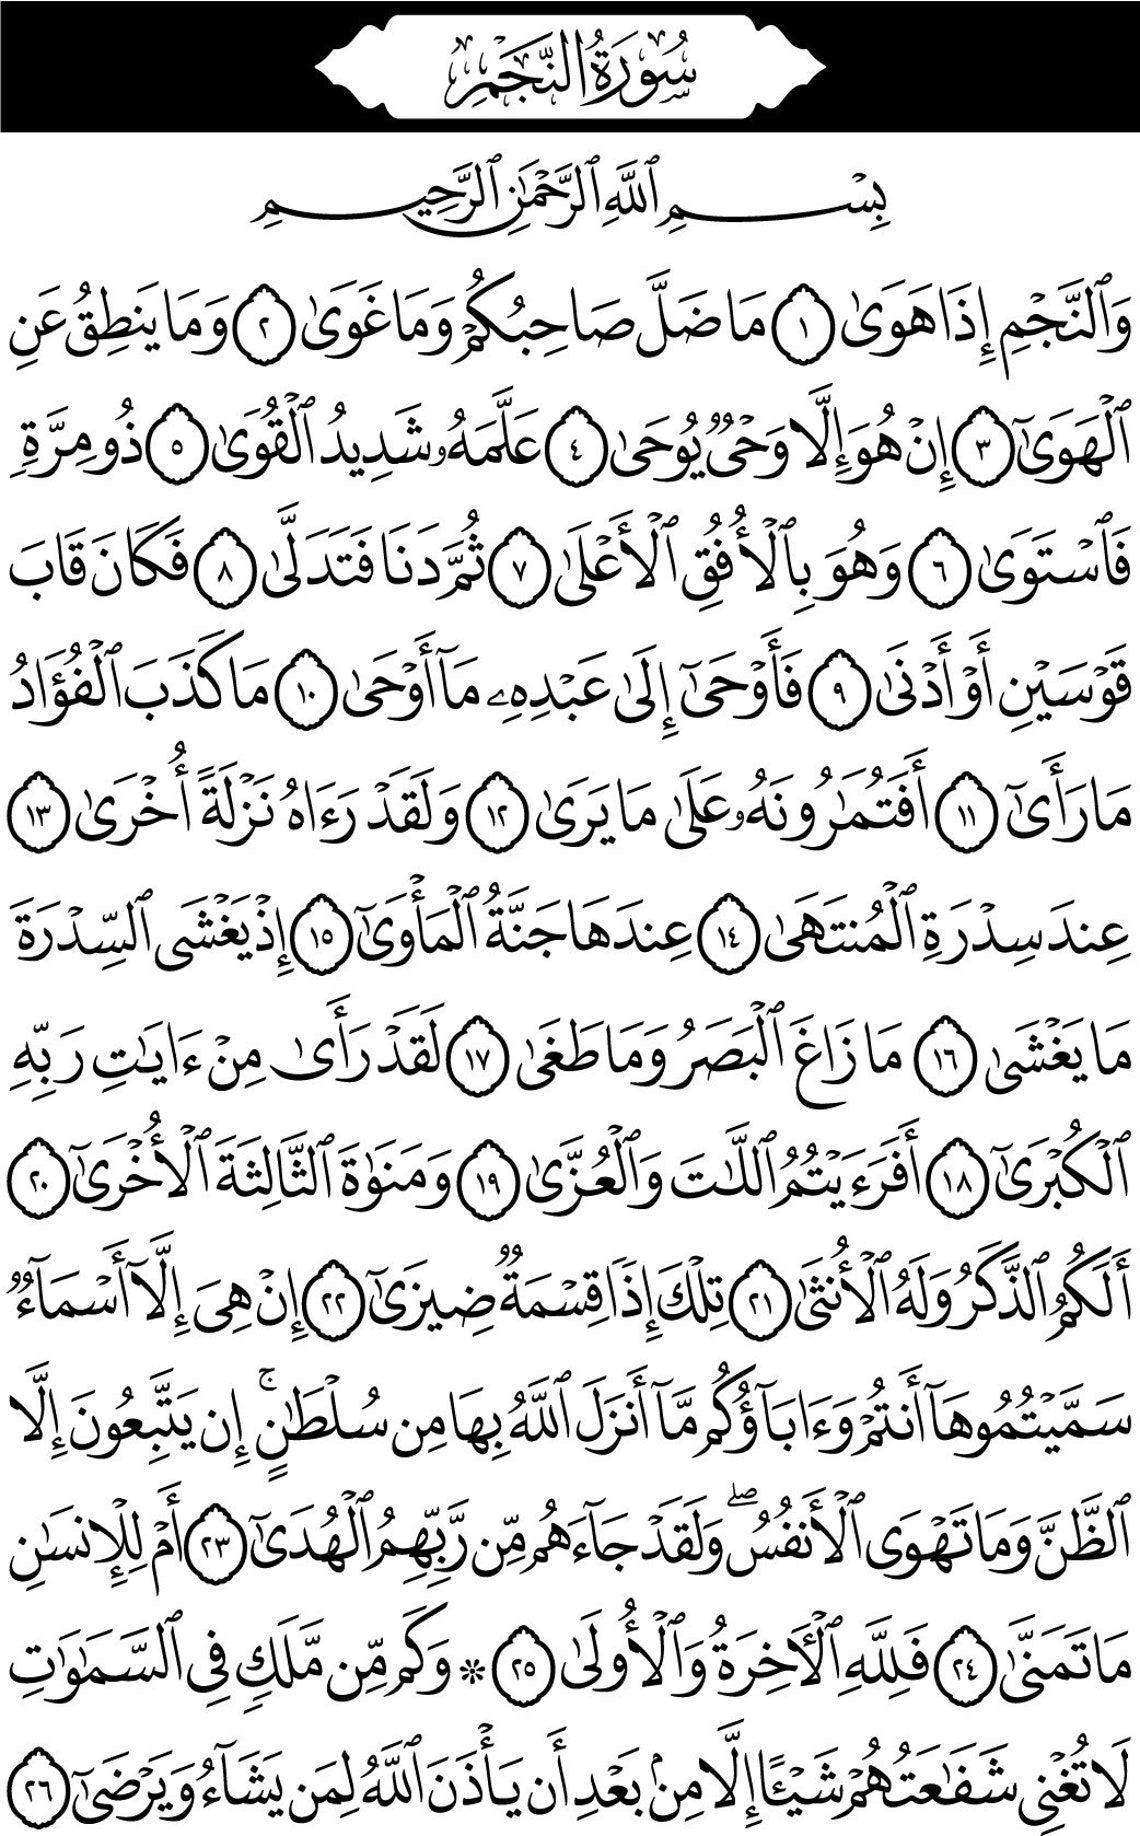 سُورَةُ النَّجْمِ
بِسْمِ ٱللَّهِ ٱلرَّحْمَٰنِ ٱلرَّحِيمِ
وَٱلنَّجْمِ إِذَا هَوَىٰ ١ مَا ضَلَّ صَاحِبُكُمْ وَمَا غَوَىٰ ٢ وَمَا يَنطِقُ عَنِ
ٱلْهَوَىٰٓ ٣ إِنْ هُوَ إِلَّا وَحْىٌ يُوحَىٰ ٤ عَلَّمَهُۥ شَدِيدُ ٱلْقُوَىٰ ٥ ذُو مِرَّةٍ
فَٱسْتَوَىٰ ٦ وَهُوَ بِٱلْأُفُقِ ٱلْأَعْلَىٰ ٧ ثُمَّ دَنَا فَتَدَلَّىٰ ٨ فَكَانَ قَابَ
قَوْسَيْنِ أَوْ أَدْنَىٰ ٩ فَأَوْحَىٰٓ إِلَىٰ عَبْدِهِۦ مَآ أَوْحَىٰ ١٠ مَا كَذَبَ ٱلْفُؤَادُ
مَا رَأَىٰٓ ١١ أَفَتُمَٰرُونَهُۥ عَلَىٰ مَا يَرَىٰ ١٢ وَلَقَدْ رَءَاهُ نَزْلَةً أُخْرَىٰ ١٣
عِندَ سِدْرَةِ ٱلْمُنتَهَىٰ ١٤ عِندَهَا جَنَّةُ ٱلْمَأْوَىٰٓ ١٥ إِذْ يَغْشَى ٱلسِّدْرَةَ
مَا يَغْشَىٰ ١٦ مَا زَاغَ ٱلْبَصَرُ وَمَا طَغَىٰ ١٧ لَقَدْ رَأَىٰ مِنْ ءَايَٰتِ رَبِّهِ
ٱلْكُبْرَىٰٓ ١٨ أَفَرَءَيْتُمُ ٱللَّٰتَ وَٱلْعُزَّىٰ ١٩ وَمَنَوٰةَ ٱلثَّالِثَةَ ٱلْأُخْرَىٰٓ ٢٠
أَلَكُمُ ٱلذَّكَرُ وَلَهُ ٱلْأُنثَىٰ ٢١ تِلْكَ إِذًا قِسْمَةٌ ضِيزَىٰٓ ٢٢ إِنْ هِىَ إِلَّآ أَسْمَآءٌ
سَمَّيْتُمُوهَآ أَنتُمْ وَءَابَآؤُكُم مَّآ أَنزَلَ ٱللَّهُ بِهَا مِن سُلْطَٰنٍ ۚ إِن يَتَّبِعُونَ إِلَّا
ٱلظَّنَّ وَمَا تَهْوَى ٱلْأَنفُسُ ۖ وَلَقَدْ جَآءَهُم مِّن رَّبِّهِمُ ٱلْهُدَىٰٓ ٢٣ أَمْ لِلْإِنسَٰنِ
مَا تَمَنَّىٰ ٢٤ فَلِلَّهِ ٱلْءَاخِرَةُ وَٱلْأُولَىٰ ٢٥ ۞ وَكَم مِّن مَّلَكٍ فِى ٱلسَّمَٰوَٰتِ
لَا تُغْنِى شَفَٰعَتُهُمْ شَيْـًٔا إِلَّا مِنۢ بَعْدِ أَن يَأْذَنَ ٱللَّهُ لِمَن يَشَآءُ وَيَرْضَىٰٓ ٢٦